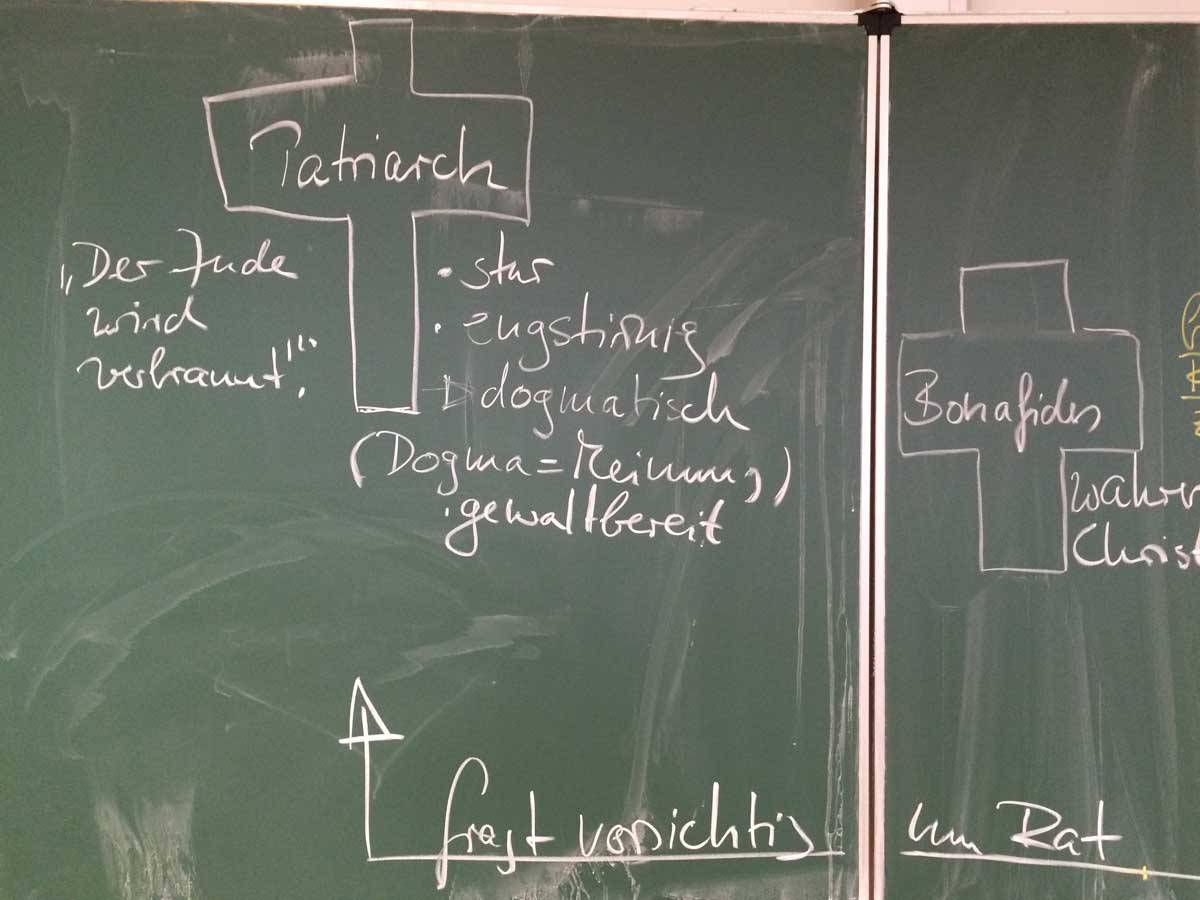 Patriarch
„Der Jude
wird
verbrannt“!
• stur
• engstirnig
dogmatisch
(Dogma = Meinung)
• gewaltbereit
Bonafides
Christ
fragt vorsichtig um Rat